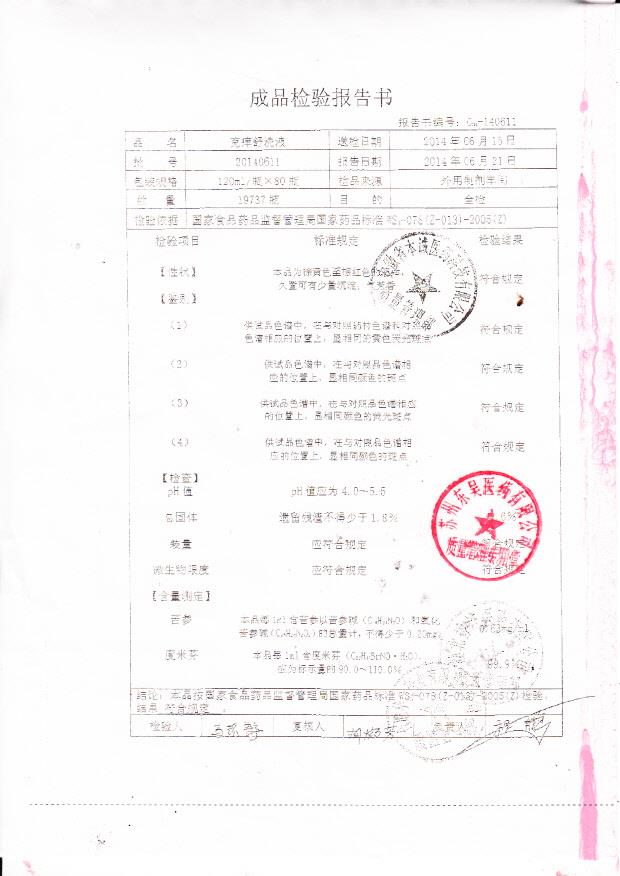 成品检验报告书
报告书编号: Cw-140611
品 名 克痒舒洗液 送检日期 2014 年 06 月 15 日
批 号 20140611 报告日期 2014 年 06 月 21 日
包装规格 120ml/瓶×80 瓶 检品来源 外用制剂车间
数 量 19737 瓶 目 的 全检
检验依据 国家食品药品监督管理局国家药品标准 WS₃-078(Z-013)-2005(Z)
检验项目 标准规定 检验结果
【性状】 本品为棕黄色至棕红色的液体, 符合规定
久置可有少量沉淀,
【鉴别】
(1) 供试品色谱中,在与对照药材色谱和对照 符合规定
色谱相应的位置上,显相同的黄色荧光斑点
(2) 供试品色谱中,在与对照品色谱相 符合规定
应的位置上,显相同颜色的斑点
(3) 供试品色谱中,在与对照品色谱相应 符合规定
的位置上,显相同颜色的荧光斑点
(4) 供试品色谱中,在与对照品色谱相 符合规定
应的位置上,显相同颜色的斑点
【检查】
pH 值 pH 值应为 4.0~5.5
总固体 遗留残渣不得少于 1.6%
装量 应符合规定 符合规定
微生物限度 应符合规定 符合规定
【含量测定】
苦参 本品每 1ml 含苦参以苦参碱 和氧化
苦参碱 的总量计,不得少于 0.20mg
度米芬 本品每 1ml 含度米芬
应为标示量的 90.0~110.0% 99.91%
结论: 本品按国家食品药品监督管理局国家药品标准 WS₃-078(Z-013)-2005(Z)检验,
结果 符合规定
检验人 复核人 负责人
苏州东吴医药有限公司